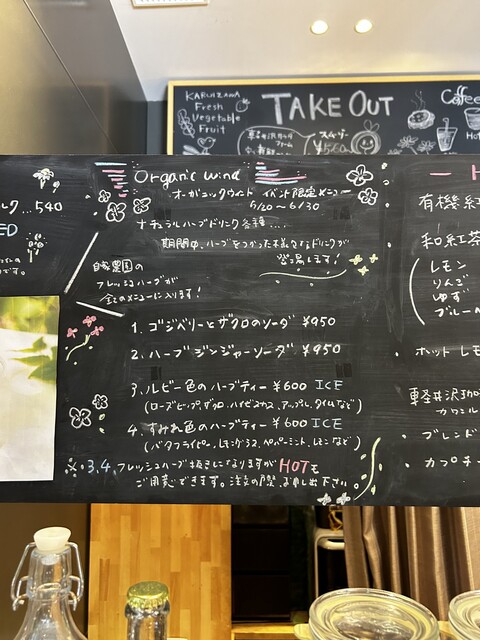 KARUIZAWA
Fresh
Vegetable
Fruit
TAKE OUT
スムージー
¥560
Coffee
Hot
Organic Wind
オーガニックウィンド イベント限定メニュー
5/20〜6/30
ナチュラルハーブドリンク各種....
期間中、ハーブをつかった様々なドリンクが
登場します!
自家農園の
フレッシュハーブが
全てのメニューに入ります!
1. ゴジベリーとザクロのソーダ ¥950
2. ハーブジンジャーソーダ ¥950
3. ルビー色のハーブティー ¥600 ICE
(ローズヒップ、ザクロ、ハイビスカス、アップル、タイムなど)
4. すみれ色のハーブティー ¥600 ICE
(バタフライピー、レモングラス、ペパーミント、レモンなど)
※・3.4. フレッシュハーブ抜きになりますがHOTも
ご用意できます。注文の際、お申し出下さい。
ルク...540
ED
です。
H
有機紅
和紅茶
レモン
りんご
ゆず
ブルーベ
・ホットレモ
軽井沢
カモミール
・ブレンド
・カプチー